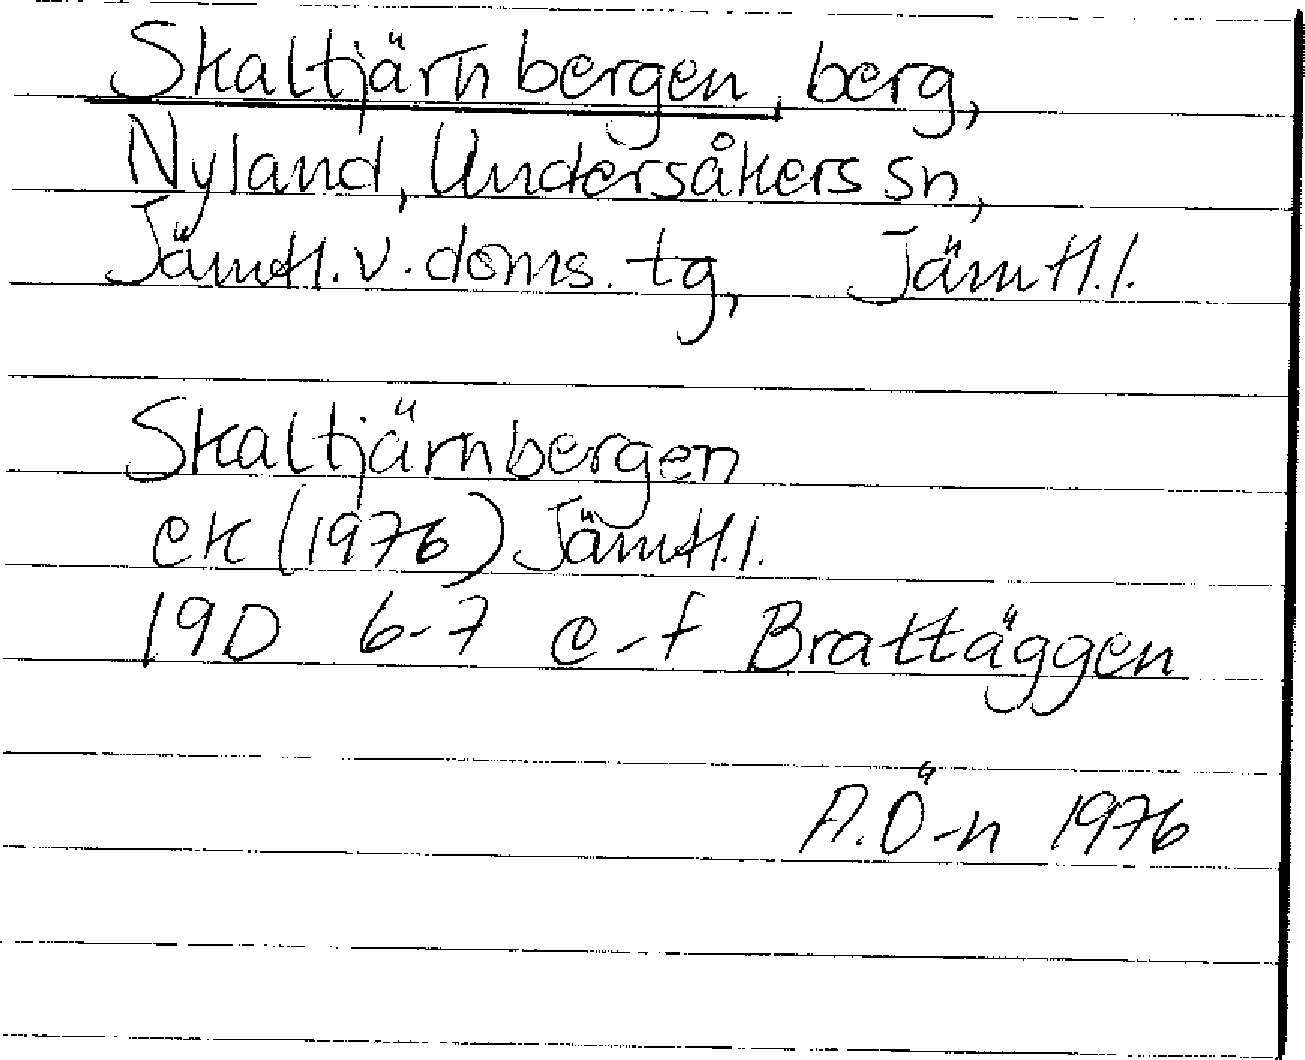 Skaltjärnbergen, berg,
Nyland, Undersåkers sn,
Jämtl. v. doms. tg, Jämtl. l.
Skaltjärnbergen
ek (1976) Jämtl. l.
19D 6-7 e-f Brattäggen
A.Ö-n 1976